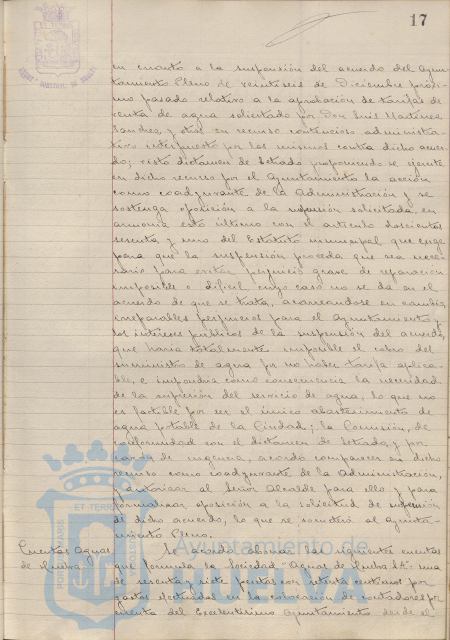 17
en cuanto a la suspensión del acuerdo del Ayun-
tamiento Pleno de veintiseis de Diciembre próxi-
mo pasado relativo a la aprobación de tarifas de
venta de agua solicitado por Don Luis Martinez
Sanchez, y otros en recurso contencioso administra-
tivo interpuesto por los mismos contra dicho acuer-
do; visto dictamen de Letrado proponiendo se ejercite
en dicho recurso por el Ayuntamiento la acción
como coadyuvante de la Administración y se
sostenga oposición a la suspensión solicitada, en
armonia esto último con el articulo doscientos
sesenta y uno del Estatuto municipal que exige
para que la suspensión proceda que sea nece-
sario para evitar perjuicio grave de reparación
imposible o dificil cuyo caso no se da en el
acuerdo de que se trata, en cambio
irreparables perjuicios para el Ayuntamiento y
los intereses públicos de la suspensión del acuerdo,
que haria totalmente imposible el cobro del
suministro de agua por no haber tarifa aplica-
ble, e impondria como consecuencia la necesidad
de la supresión del servicio de agua, lo que no
es factible por ser el único abastecimiento de
agua potable de la Ciudad; la Comisión, de
conformidad con el dictamen de Letrado, y por
razón de urgencia, acordó comparecer en dicho
recurso como coadyuvante de la Administración,
y autorizar al Señor Alcalde para ello y para
formalizar oposición a la solicitud de suspensión
de dicho acuerdo, lo que se someterá al Ayunta-
miento Pleno.
Cuentas Aguas
de Huelva
Se acordó abonar las siguientes cuentas
que formula la Sociedad "Aguas de Huelva S.A." una
de sesenta y siete pesetas con setenta centimos por
gastos efectuados en la colocación de contadores por
cuenta del Excelentisimo Ayuntamiento desde el
Ayuntamiento de
HUELVA